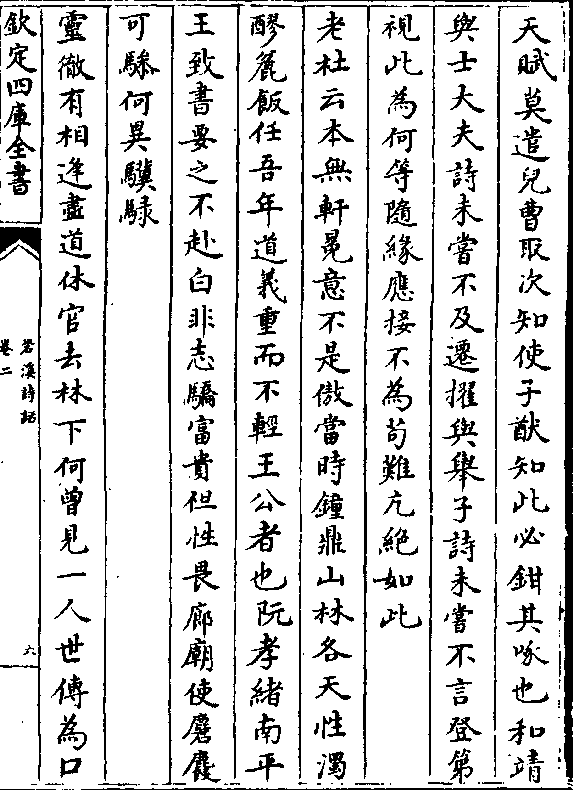 天賦莫遣兒曹取次知使子猷知此必鉗其喙也和靖
與士大夫詩未嘗不及遷擢與舉子詩未嘗不言登第
視此為何等隨緣應接不為苟難亢絶如此
老杜云本無軒冕意不是傲當時鐘鼎山林各天性濁
醪麄飯任吾年道義重而不輕王公者也阮孝緒南平
王致書要之不赴白非志驕富貴但性畏廊廟使麏麚
可驂何異驥騄
靈徹有相逢盡道休官去林下何曾見一人世傳為口
欽定四庫全書
䂬溪詩話
卷二
六